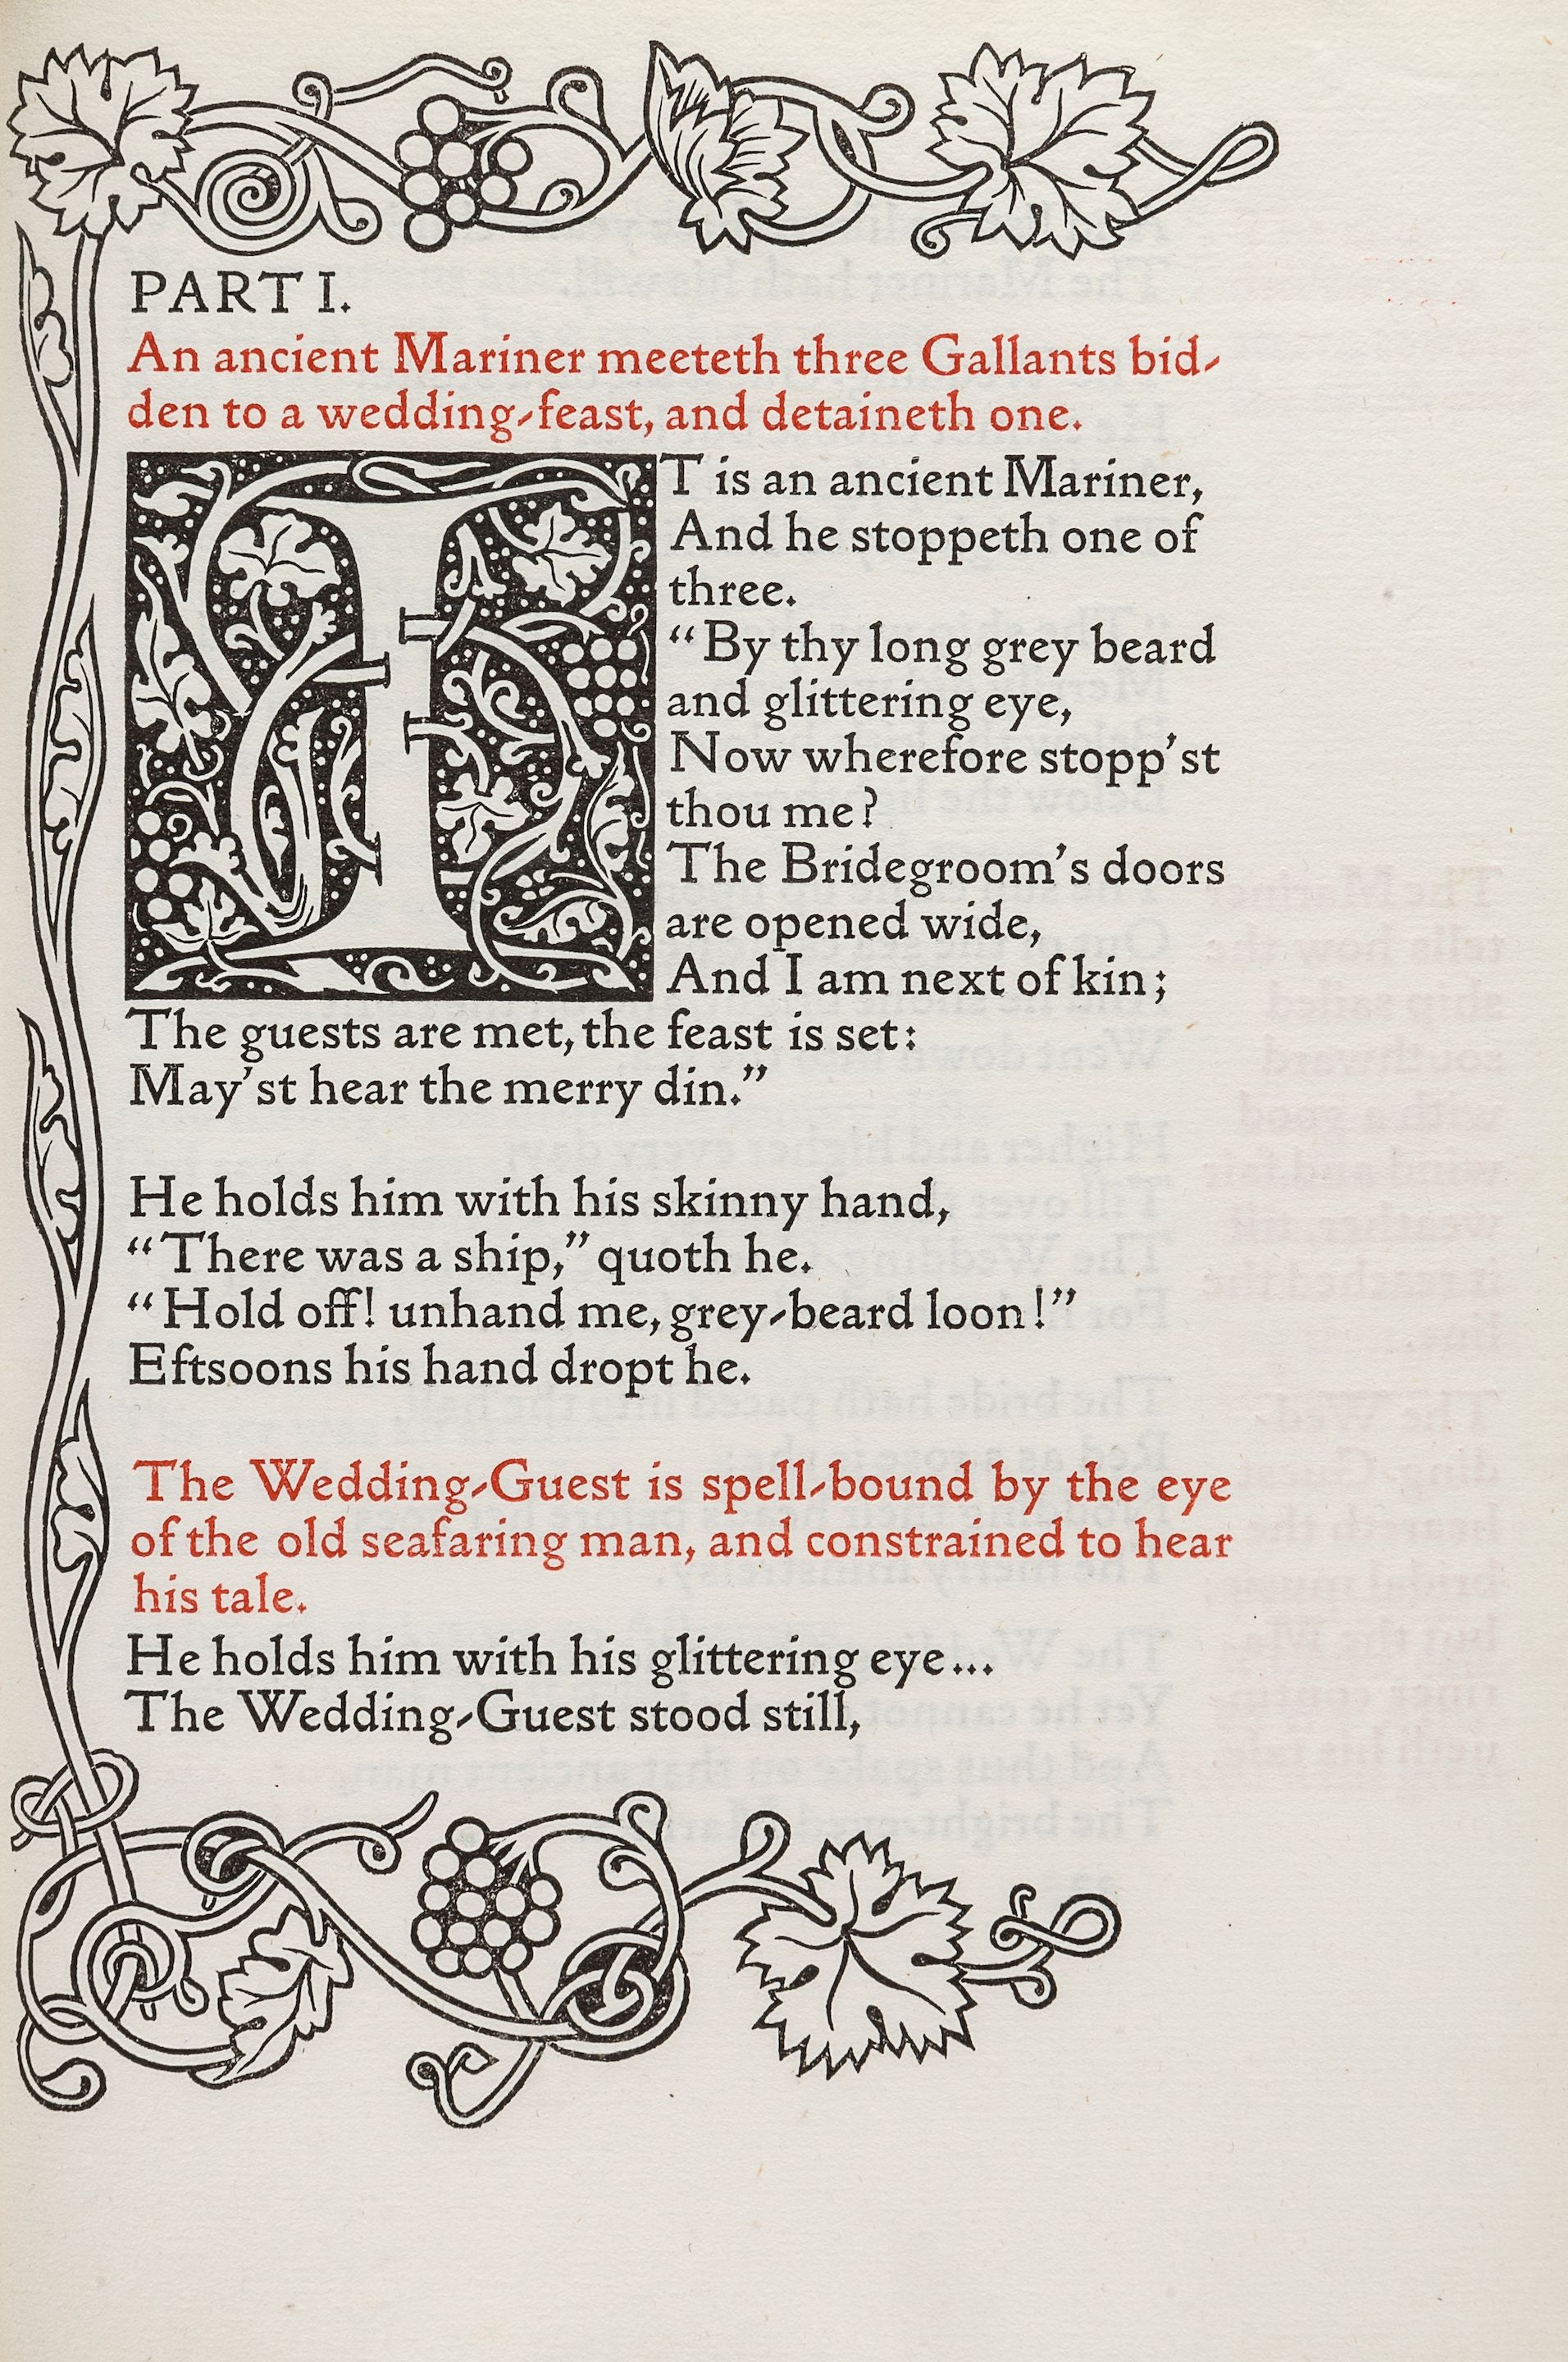 PART I.
An ancient Mariner meeteth three Gallants bid-
den to a wedding-feast, and detaineth one.
IT is an ancient Mariner,
And he stoppeth one of
three.
“By thy long grey beard
and glittering eye,
Now wherefore stopp’st
thou me?
The Bridegroom’s doors
are opened wide,
And I am next of kin;
The guests are met, the feast is set:
May’st hear the merry din.”
He holds him with his skinny hand,
“There was a ship,” quoth he.
“Hold off! unhand me, grey-beard loon!”
Eftsoons his hand dropt he.
The Wedding-Guest is spell-bound by the eye
of the old seafaring man, and constrained to hear
his tale.
He holds him with his glittering eye...
The Wedding-Guest stood still,